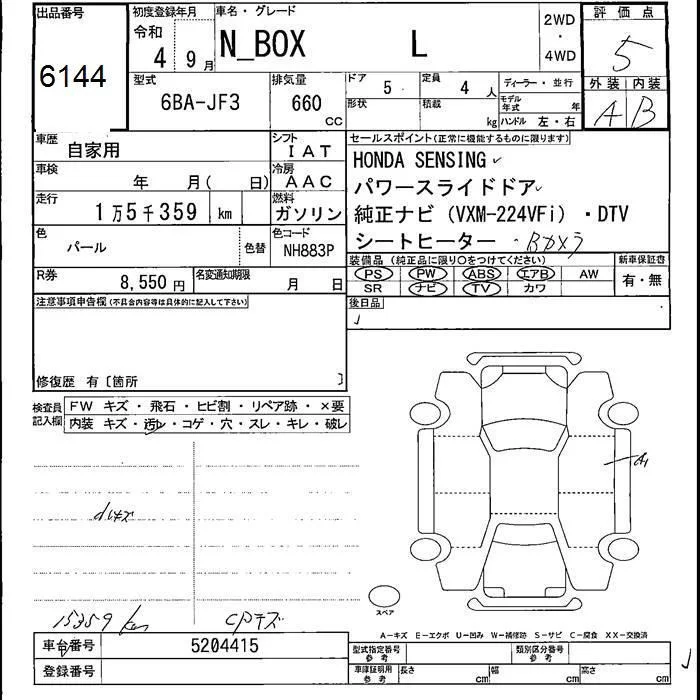 出品番号 初度登録年月 車名・グレード 2WD・4WD 評価点
6144 令和 4 9月 N_BOX L 5
外装 内装
A B
型式 排気量 ドア 5 定員 4人 ディーラー・並行
6BA-JF3 660 CC 形状 積載 kg モデル年式 年
ハンドル 左・右
車歴 自家用 シフト IAT
車検 年 月( 日) 冷房 AAC
走行 1万5千359 km 燃料 ガソリン
色 パール 色替 色コード NH883P
R券 8,550円 名変通知期限 月 日
セールスポイント(正常に機能するものに限ります)
HONDA SENSING
パワースライドドア
純正ナビ(VXM-224VFi)・DTV
シートヒーター ・Bカメラ
装備品(純正品に限り○をつけてください) 新車保証書
PS PW ABS エアB AW 有・無
SR ナビ TV カワ
後日品
注意事項申告欄(不具合内容等は具体的に記入して下さい)
修復歴 有〔箇所 〕
検査員記入欄 FW キズ・飛石・ヒビ割・リペア跡・×要
内装 キズ・汚レ・コゲ・穴・スレ・キレ・破レ
A1
小キズ
15359 km CPキズ
スペア
A-キズ E-エクボ U-凹み W-補修跡 S-サビ C-腐食 XX-交換済
車台番号 5204415 型式指定番号 参考 類別区分番号 参考
登録番号 車庫証明用 参考 長さ cm 幅 cm 高さ cm